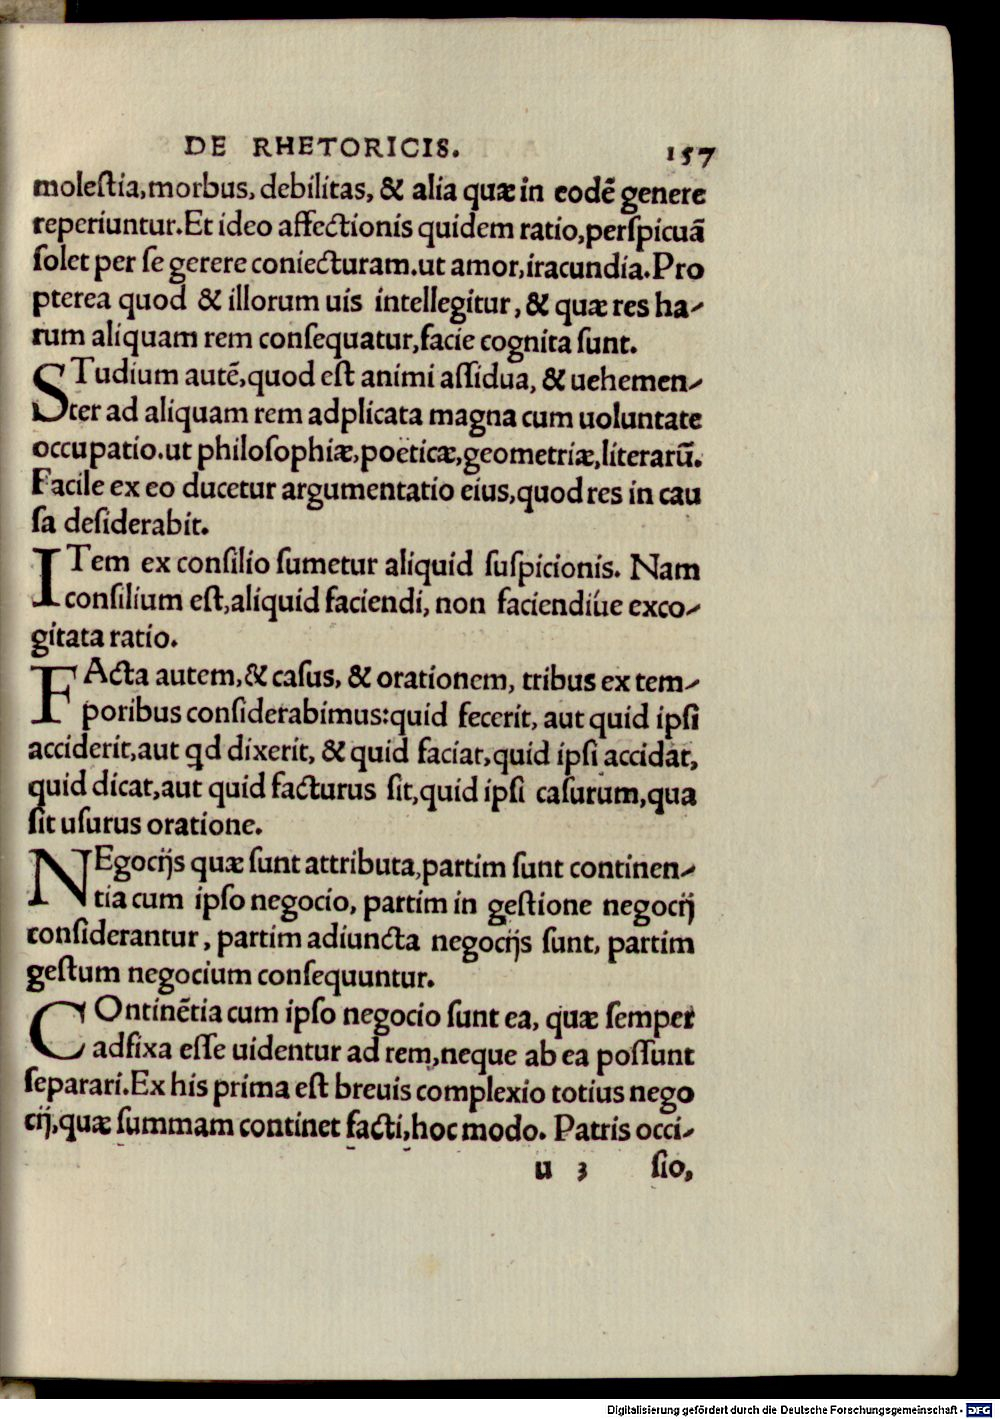 DE RHETORICIS. 157
moleſtia,morbus, debilitas, & alia quæ in eodē genere
reperiuntur.Et ideo affectionis quidem ratio,perſpicuā
ſolet per ſe gerere coniecturam.ut amor,iracundia.Pro
pterea quod & illorum uis intellegitur, & quæ res ha-
rum aliquam rem conſequatur,facie cognita ſunt.
STudium autē,quod eſt animi aſſidua, & uehemen-
ter ad aliquam rem adplicata magna cum uoluntate
occupatio.ut philoſophiæ,poeticæ,geometriæ,literarū.
Facile ex eo ducetur argumentatio eius,quod res in cau
ſa deſiderabit.
ITem ex conſilio ſumetur aliquid ſuſpicionis. Nam
conſilium eſt,aliquid faciendi, non faciendíue exco-
gitata ratio.
FActa autem,& caſus, & orationem, tribus ex tem-
poribus conſiderabimus:quid fecerit, aut quid ipſi
acciderit,aut qd dixerit, & quid faciat,quid ipſi accidat,
quid dicat,aut quid facturus ſit,quid ipſi caſurum,qua
ſit uſurus oratione.
NEgocijs quæ ſunt attributa,partim ſunt continen-
tia cum ipſo negocio, partim in geſtione negocij
conſiderantur, partim adiuncta negocijs ſunt, partim
geſtum negocium conſequuntur.
COntinētia cum ipſo negocio ſunt ea, quæ ſemper
adfixa eſſe uidentur ad rem,neque ab ea poſſunt
ſeparari.Ex his prima eſt breuis complexio totius nego
cij,quæ ſummam continet facti,hoc modo. Patris occi-
u 3 ſio,
Digitalisierung gefördert durch die Deutsche Forschungsgemeinschaft - DFG